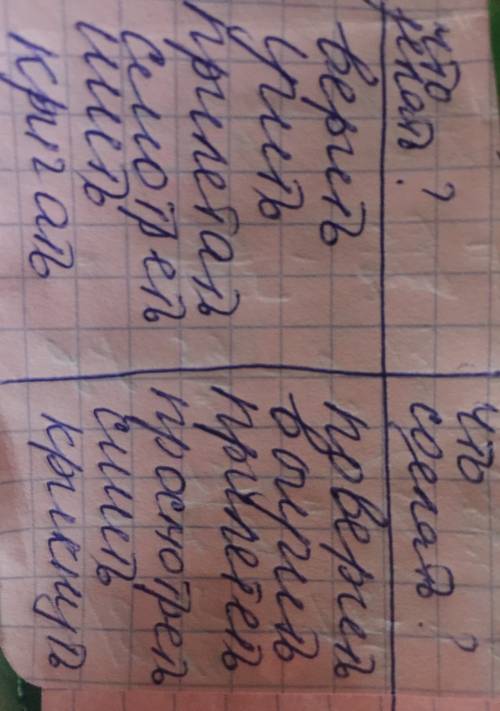 что
делать?
верить
учить
прилетать
смотреть
шить
кричать
что
сделать?
поверить
выучить
прилететь
просмотреть
сшить
крикнуть